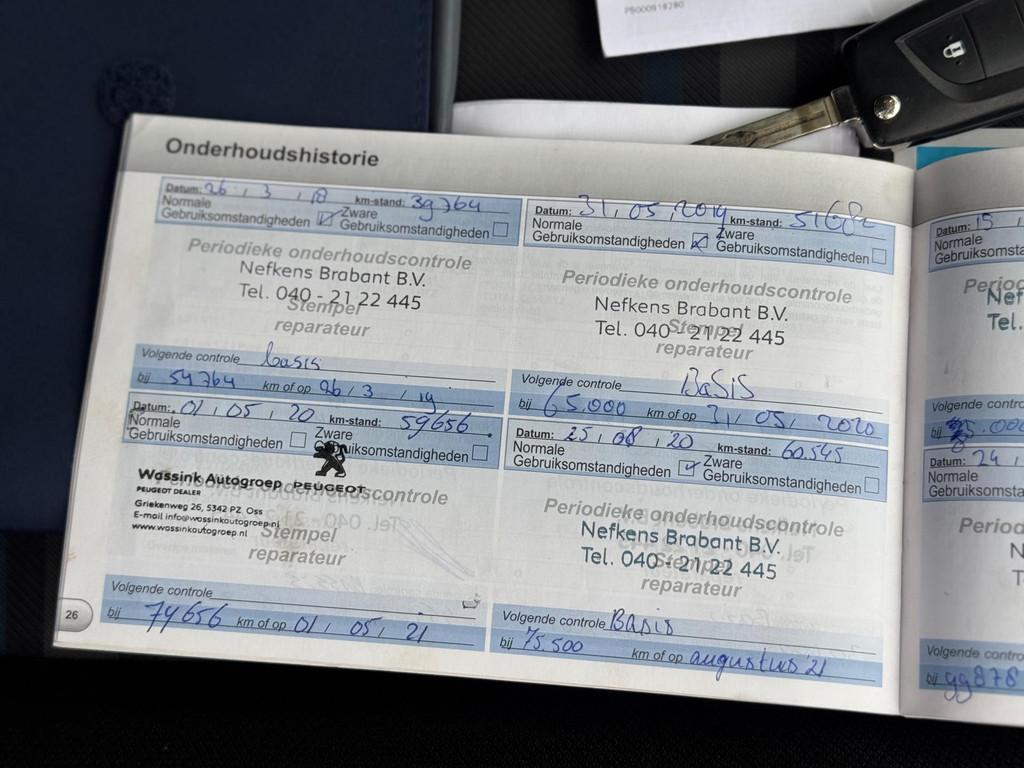 PB000918280
Onderhoudshistorie
Datum: 26 / 3 / 18 km-stand: 39764
Normale Gebruiksomstandigheden
Zware Gebruiksomstandigheden
Periodieke onderhoudscontrole
Nefkens Brabant B.V.
Tel. 040 - 21 22 445
Stempel
reparateur
Volgende controle basis
bij 54764 km of op 26 / 3 / 19
Datum: 31 / 05 / 2019 km-stand: 51682
Normale Gebruiksomstandigheden
Zware Gebruiksomstandigheden
Periodieke onderhoudscontrole
Nefkens Brabant B.V.
Tel. 040 - 21 22 445
Stempel
reparateur
Volgende controle BASIS
bij 65.000 km of op 31 / 05 / 2020
Datum: 01 / 05 / 20 km-stand: 59656
Normale Gebruiksomstandigheden
Zware Gebruiksomstandigheden
Wassink Autogroep PEUGEOT
PEUGEOT DEALER
Griekenweg 26, 5342 PZ Oss
E-mail info@wassinkautogroep.nl
www.wassinkautogroep.nl
Stempel
reparateur
Volgende controle
bij 74656 km of op 01 / 05 / 21
Datum: 25 / 08 / 20 km-stand: 60.545
Normale Gebruiksomstandigheden
Zware Gebruiksomstandigheden
Periodieke onderhoudscontrole
Nefkens Brabant B.V.
Tel. 040 - 21 22 445
Stempel
reparateur
Volgende controle Basis
bij 75.500 km of op augustus '21
26
Datum: 15 /
Normale
Gebruiksomsta
Tel.
Volgende contro
bij
Datum: 24 /
Normale
Gebruiksomsta
Period
Volgende contro
bij 99878